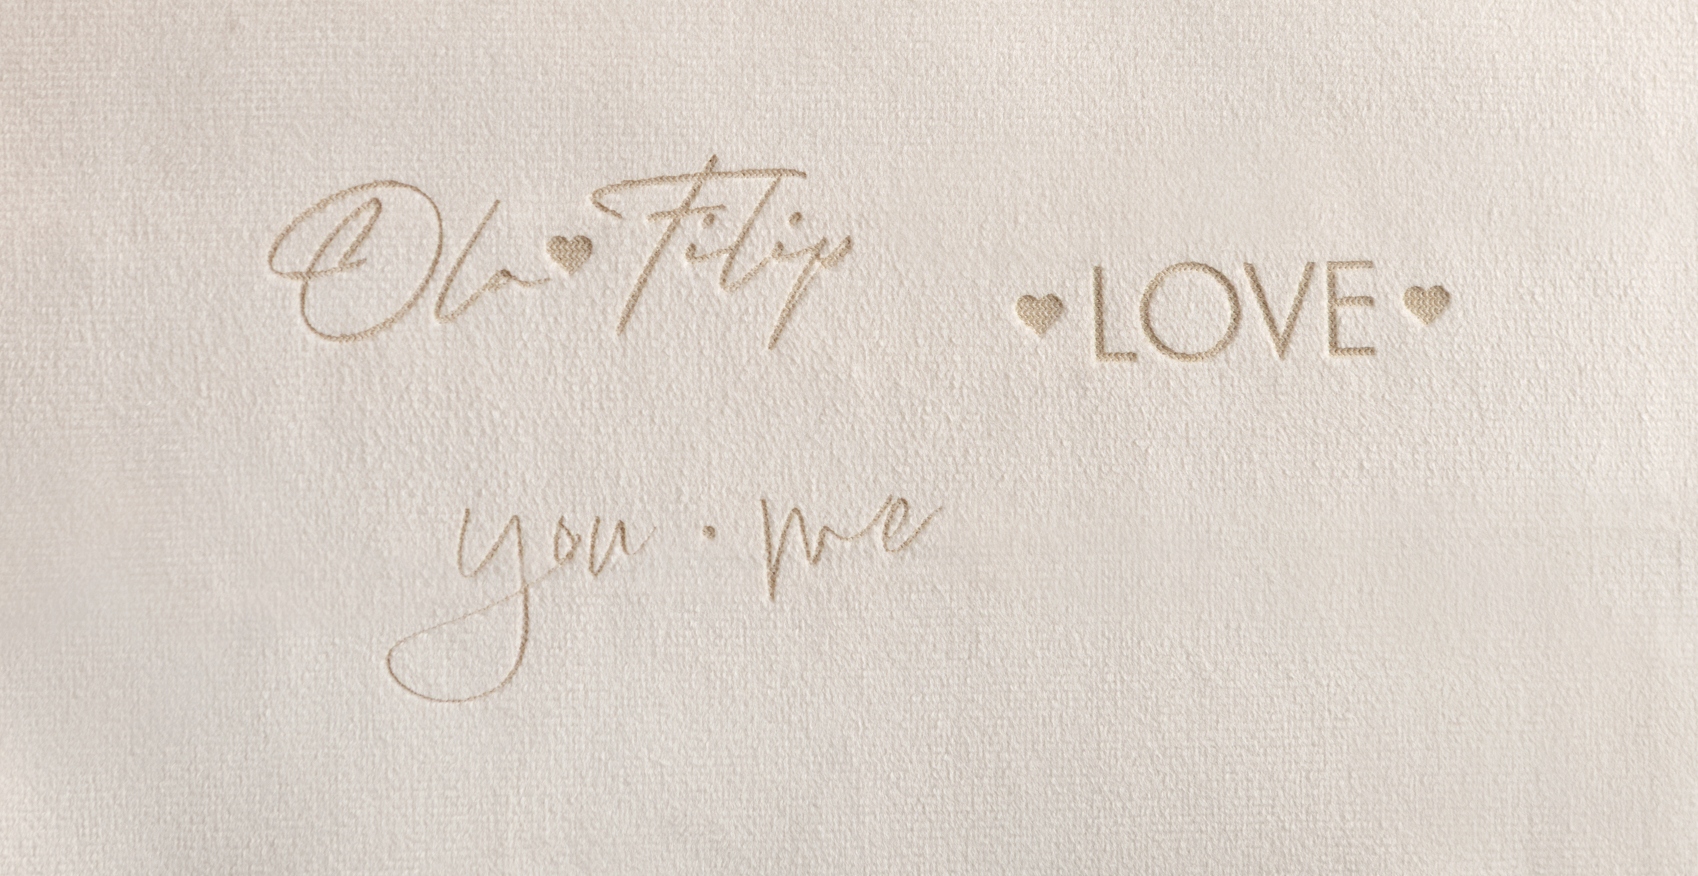 Ola♥Filip
♥LOVE♥
you · me